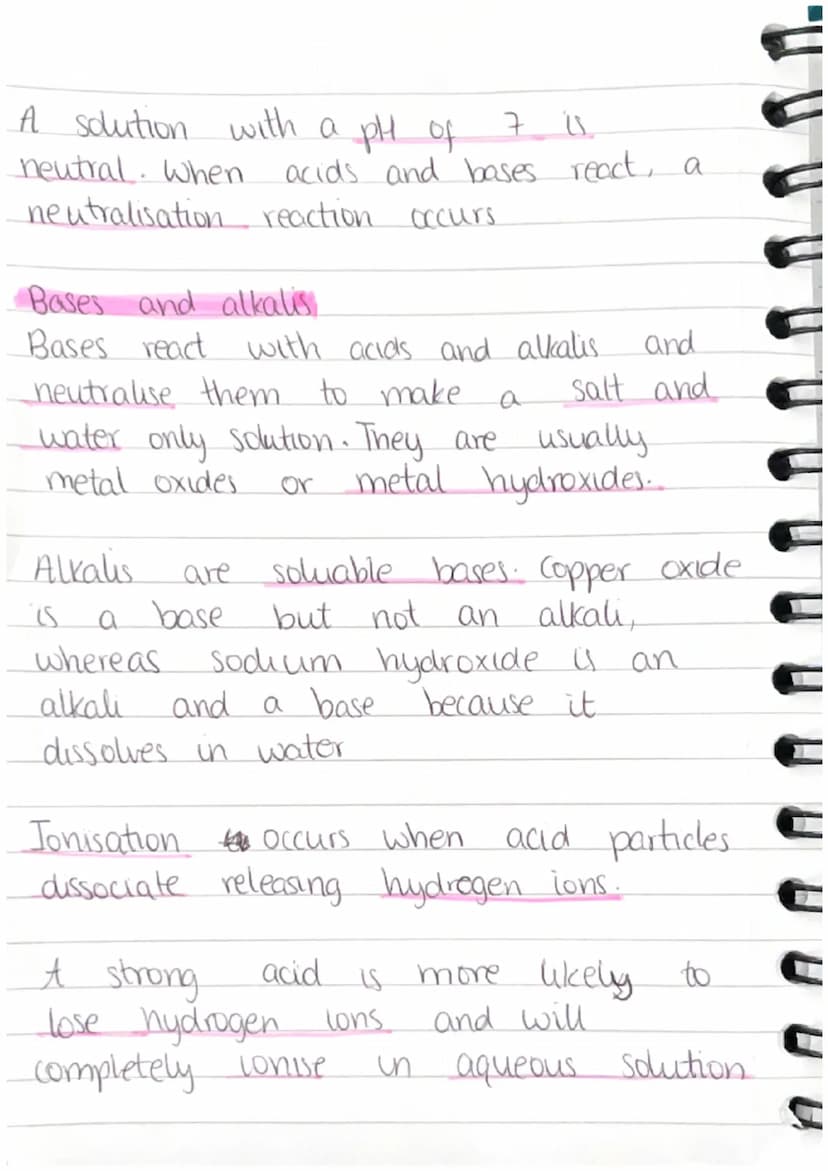 A solution with a pH of 7 is
neutral. When acids and bases react, a
neutralisation reaction occurs
Bases and alkalis
Bases react with acids and alkalis and
neutralise them to make a salt and
water only solution. They are usually
metal oxides or metal hydroxides.
Alkalis are soluable bases. Copper oxide
is a base but not an alkali,
whereas sodium hydroxide is an
alkali and a base because it
dissolves in water
Ionisation occurs when acid particles
dissociate releasing hydrogen ions.
A strong acid is more likely to
lose hydrogen ions and will
completely ionise in aqueous solution